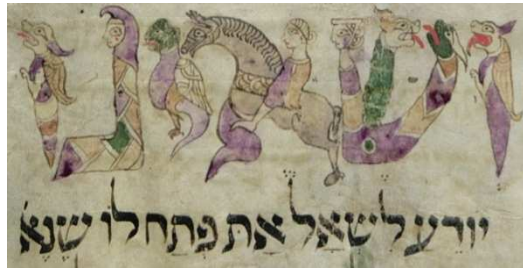 ושאינו
יודע לשאל את פתח לו שנא'